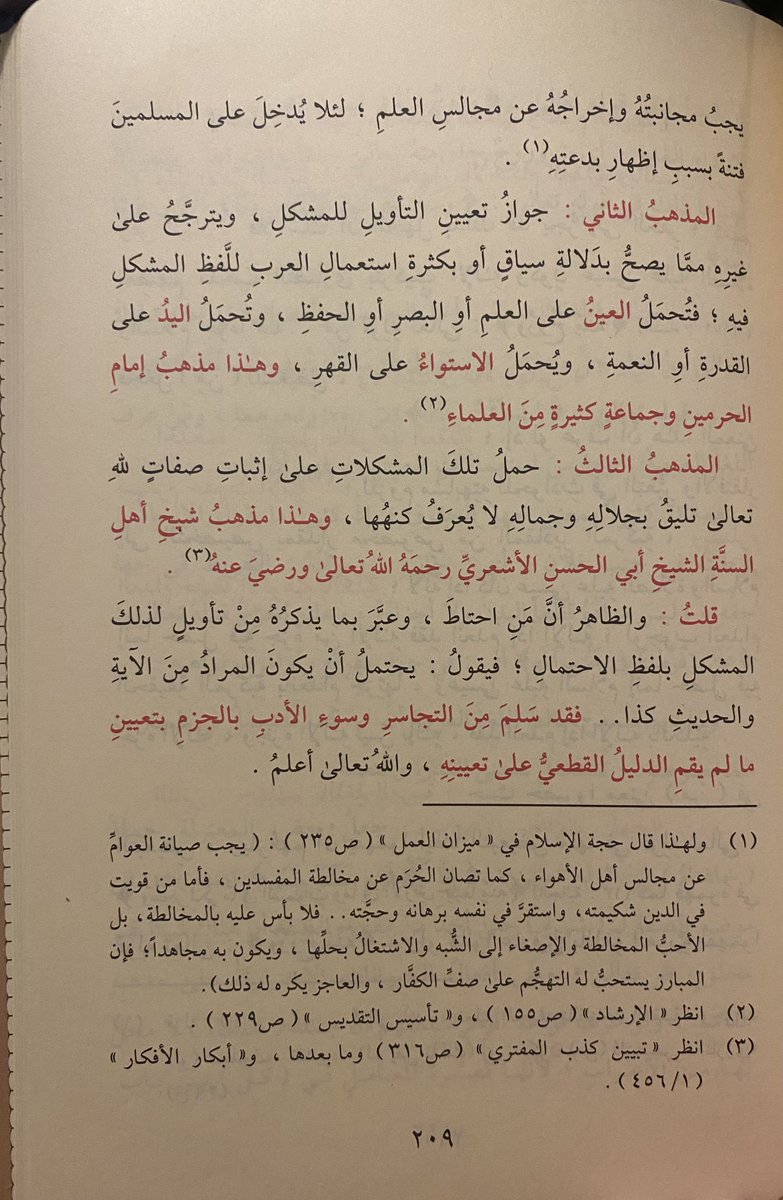 يجبُ مجانبتُهُ وإخراجُهُ عن مجالسِ العلمِ ؛ لئلا يُدخِلَ على المسلمينَ
فتنةً بسببِ إظهارِ بدعتِهِ(١) .
المذهبُ الثاني : جوازُ تعيينِ التأويلِ للمشكلِ ، ويترجَّحُ علىٰ
غيرِهِ ممَّا يصحُّ بدَلالةِ سياقٍ أو بكثرةِ استعمالِ العربِ للَّفظِ المشكلِ
فيهِ ؛ فتُحمَلُ العينُ على العلمِ أوِ البصرِ أوِ الحفظِ ، وتُحمَلُ اليدُ على
القدرةِ أوِ النعمةِ ، ويُحمَلُ الاستواءُ على القهرِ ، وهـٰذا مذهبُ إمامِ
الحرمينِ وجماعةٍ كثيرةٍ مِنَ العلماءِ(٢) .
المذهبُ الثالثُ : حملُ تلكَ المشكلاتِ علىٰ إثباتِ صفاتٍ للهِ
تعالىٰ تليقُ بجلالِهِ وجمالِهِ لا يُعرَفُ كنهُها ، وهـٰذا مذهبُ شيخِ أهلِ
السنَّةِ الشيخِ أبي الحسنِ الأشعريِّ رحمَهُ اللهُ تعالىٰ ورضيَ عنهُ(٣) .
قلتُ : والظاهرُ أنَّ مَنِ احتاطَ ، وعبَّرَ بما يذكرُهُ مِنْ تأويلٍ لذلكَ
المشكلِ بلفظِ الاحتمالِ ؛ فيقولُ : يحتملُ أنْ يكونَ المرادُ مِنَ الآيةِ
والحديثِ كذا.. فقد سَلِمَ مِنَ التجاسرِ وسوءِ الأدبِ بالجزمِ بتعيينِ
ما لم يقمِ الدليلُ القطعيُّ علىٰ تعيينِهِ ، واللهُ تعالىٰ أعلمُ .
(١) ولهـٰذا قال حجة الإسلام في « ميزان العمل » ( ص٢٣٥ ) : ( يجب صيانة العوامِّ
عن مجالس أهل الأهواء ، كما تصان الحُرَم عن مخالطة المفسدين ، فأما من قويت
في الدين شكيمته، واستقرَّ في نفسه برهانه وحجَّته.. فلا بأس عليه بالمخالطة، بل
الأحبُّ المخالطة والإصغاء إلى الشُّبه والاشتغالُ بحلِّها ، ويكون به مجاهداً؛ فإن
المبارز يستحبُّ له التهجُّم علىٰ صفِّ الكفَّار ، والعاجز يكره له ذلك).
(٢) انظر « الإرشاد » ( ص١٥٥ ) ، و« تأسيس التقديس » ( ص٢٢٩ ) .
(٣) انظر « تبيين كذب المفتري » ( ص٣١٦ ) وما بعدها ، و« أبكار الأفكار »
( ٤٥٦/١ ) .
٢٠٩